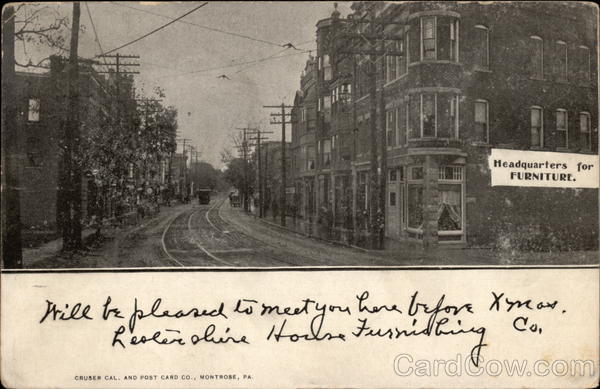 Headquarters for
FURNITURE.
Will be pleased to meet you here before Xmas.
Lestershire House Furnishing Co.
CRUSER CAL. AND POST CARD CO., MONTROSE, PA.
CardCow.com